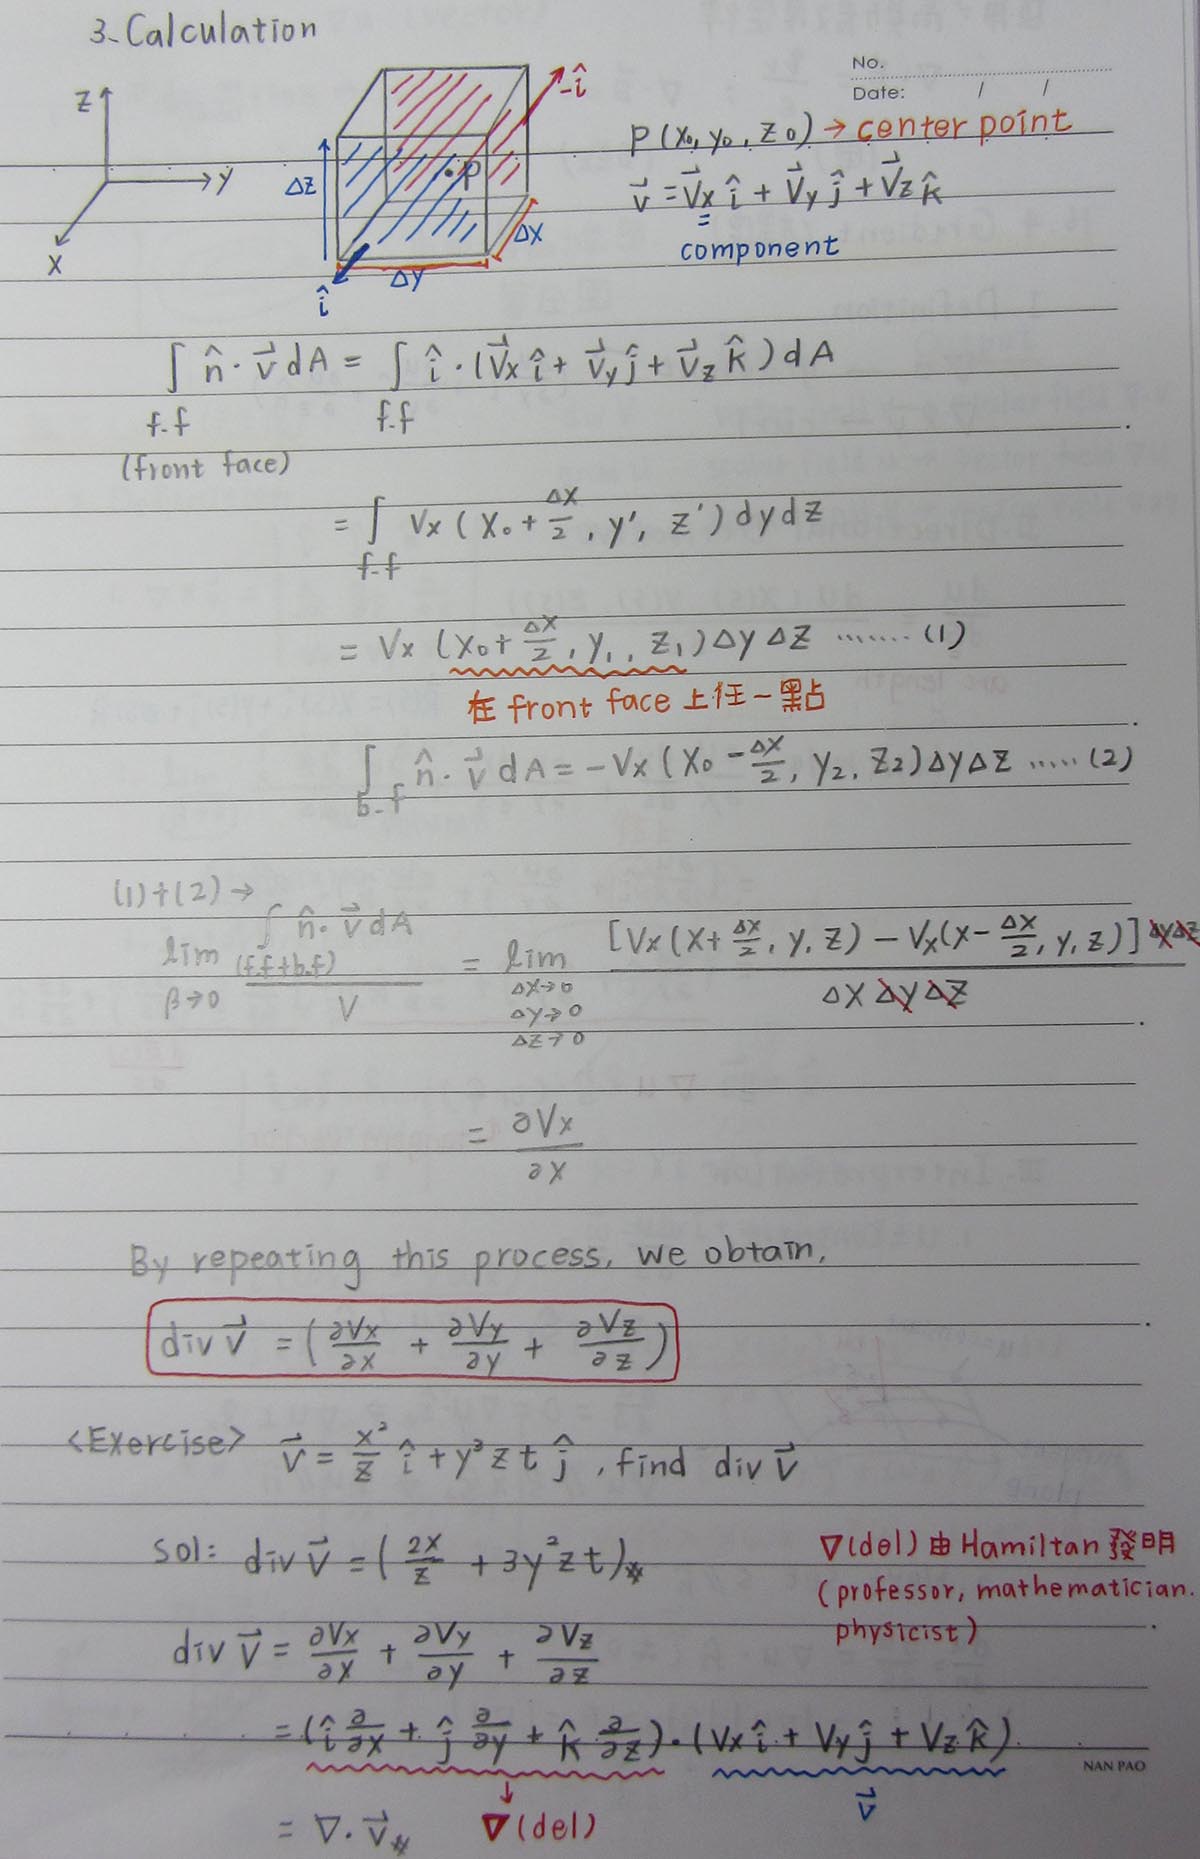 3. Calculation
No.
Date: / /
Z
Y
X
ΔZ
ΔY
ΔX
P
î
-î
P (X₀, Y₀, Z₀) → center point
v⃗ = V⃗x î + V⃗y ĵ + V⃗z k̂
component
∫ n̂ · v⃗ dA = ∫ î · (V⃗x î + V⃗y ĵ + V⃗z k̂) dA
f.f f.f
(front face)
= ∫ Vx (X₀ + ΔX/2, y', z') dy dz
f.f
= Vx (X₀ + ΔX/2, Y₁, Z₁) ΔY ΔZ ....... (1)
在 front face 上任一點
∫ n̂ · v⃗ dA = -Vx (X₀ - ΔX/2, Y₂, Z₂) ΔY ΔZ ..... (2)
b.f
(1)+(2) →
lim ∫ n̂ · v⃗ dA / V = lim [Vx (X + ΔX/2, Y, Z) - Vx (X - ΔX/2, Y, Z)] ΔYΔZ / ΔX ΔY ΔZ
β→0 (f.f+b.f) ΔX→0
ΔY→0
ΔZ→0
= ∂Vx/∂X
By repeating this process, we obtain,
div v⃗ = (∂Vx/∂X + ∂Vy/∂y + ∂Vz/∂z)
<Exercise> v⃗ = x²/z î + y³ z t ĵ, find div v⃗
sol: div v⃗ = (2x/z + 3y² z t)#
∇(del) 由 Hamiltan 發明
(professor, mathematician.
physicist)
div v⃗ = ∂Vx/∂X + ∂Vy/∂y + ∂Vz/∂z
= (î ∂/∂X + ĵ ∂/∂y + k̂ ∂/∂z) · (Vx î + Vy ĵ + Vz k̂)
NAN PAO
↓
∇ (del)
v⃗
= ∇ · v⃗ #